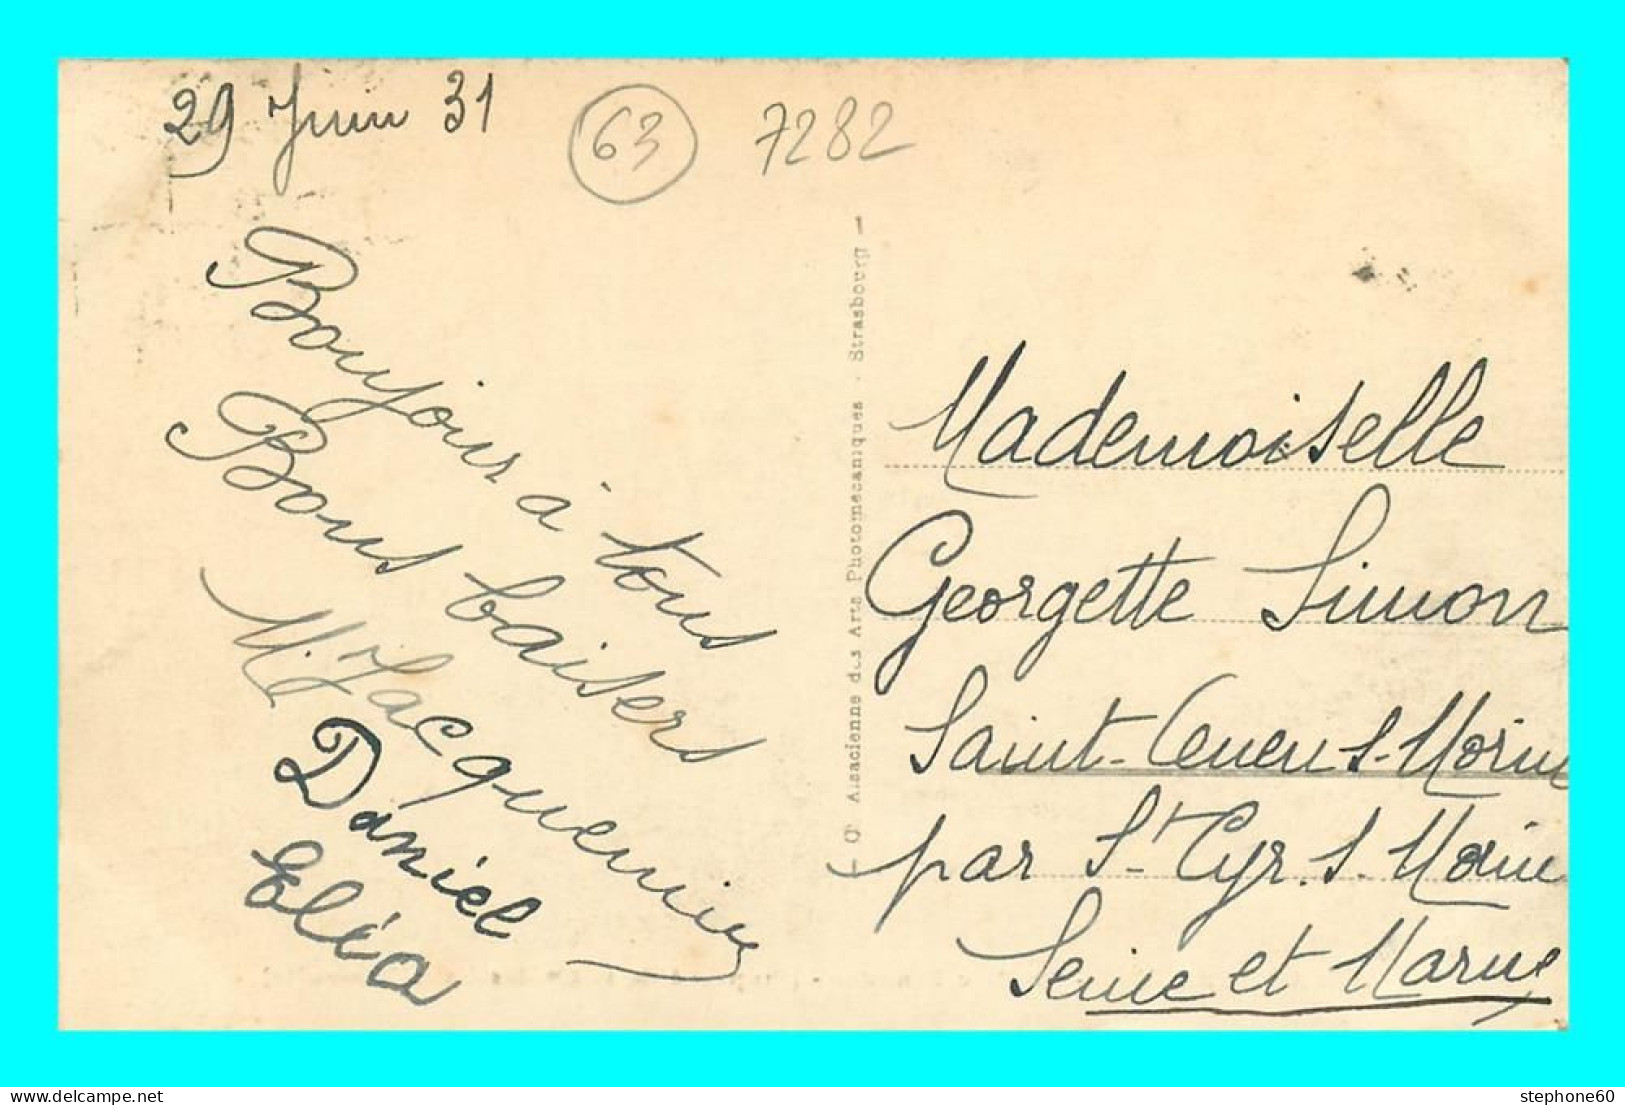 29 Juin 31
63
7282
Bonjour à tous
Bons baisers
M. Jacquemin
Daniel
Eléa
Cie Alsacienne des Arts Photomécaniques - Strasbourg
Mademoiselle
Georgette Simon
Saint-Ouen s. Morin
par St Cyr. s. Morin
Seine et Marne
stephone60